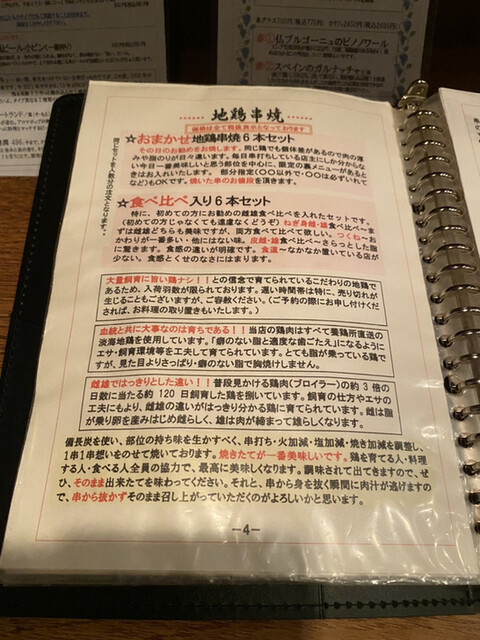 地鶏串焼
価格は全て税抜表示となっております
☆おまかせ地鶏串焼6本セット
その日のお勧めをお焼します。同じ鶏でも個体差があるので肉の厚
みや脂のりが日々違います。毎日串打ちしている店主にしか分からな
い今日一番美味しいと思う部位を中心に、限定の裏メニューがあると
きはお入れいたします。 部分指定(〇〇以外で・〇〇は必ずいれて
など)もOKです。焼いた串のお値段を頂きます。
☆食べ比べ入り6本セット
特に、初めての方にお勧めの雌雄食べ比べを入れたセットです。
(初めての方じゃなくても遠慮なくどうぞ)ねぎ身雌・雄食べ比べ~ま
ずは雌雄どちらも美味ですが、両方食べ比べて欲しい。つくね~お
かわりが一番多い・他にはない味。皮雌・雄食べ比べ~さらっとした脂
に驚きます。食感の違いが明確です。食道~なかなか置いている店が
少ない。食感とくせのなさにはまります。
同じセットを人数分の注文となります。
大量飼育に旨い鶏ナシ!!との信念で育てられているこだわりの地鶏で
あるため、入荷羽数が限られております。遅い時間帯は特に、売り切れが
生じることもございますが、ご容赦ください。(ご予約の際にお申し付けくだ
されば、お料理の取り置きもいたします。)
血統と共に大事なのは育ちである!!当店の鶏肉はすべて養鶏所直送の
淡海地鶏を使用しています。「癖のない脂と適度な歯ごたえ」になるように
エサ・飼育環境等を工夫して育てられています。とても脂が乗っている鶏で
すが、見た目よりさっぱり・癖のない脂で胸焼けしません。
雌雄ではっきりとした違い!!普段見かける鶏肉(ブロイラー)の約3倍の
日数に当たる約120日飼育した鶏を捌いています。飼育の仕方やエサの
工夫にもより、雌雄の違いがはっきり分かる鶏に育てられています。雌は脂
が乗り卵を産みはじめ雌らしく、雄は肉が締まって雄らしくなります。
備長炭を使い、部位の持ち味を生かすべく、串打ち・火加減・塩加減・焼き加減を調整し、
1串1串想いをのせて焼いております。焼きたてが一番美味しいです。鶏を育てる人・料理
する人・食べる人全員の協力で、最高に美味しくなります。調味されて出てきますので、ぜ
ひ、そのまま出来たてを味わってください。それと、串から身を抜く瞬間に肉汁が逃げますの
で、串から抜かずそのまま召し上がっていただくのがよろしいかと思います。
-4-
①仏ブルゴーニュのピノノワール
②スペインのガルナッチャ